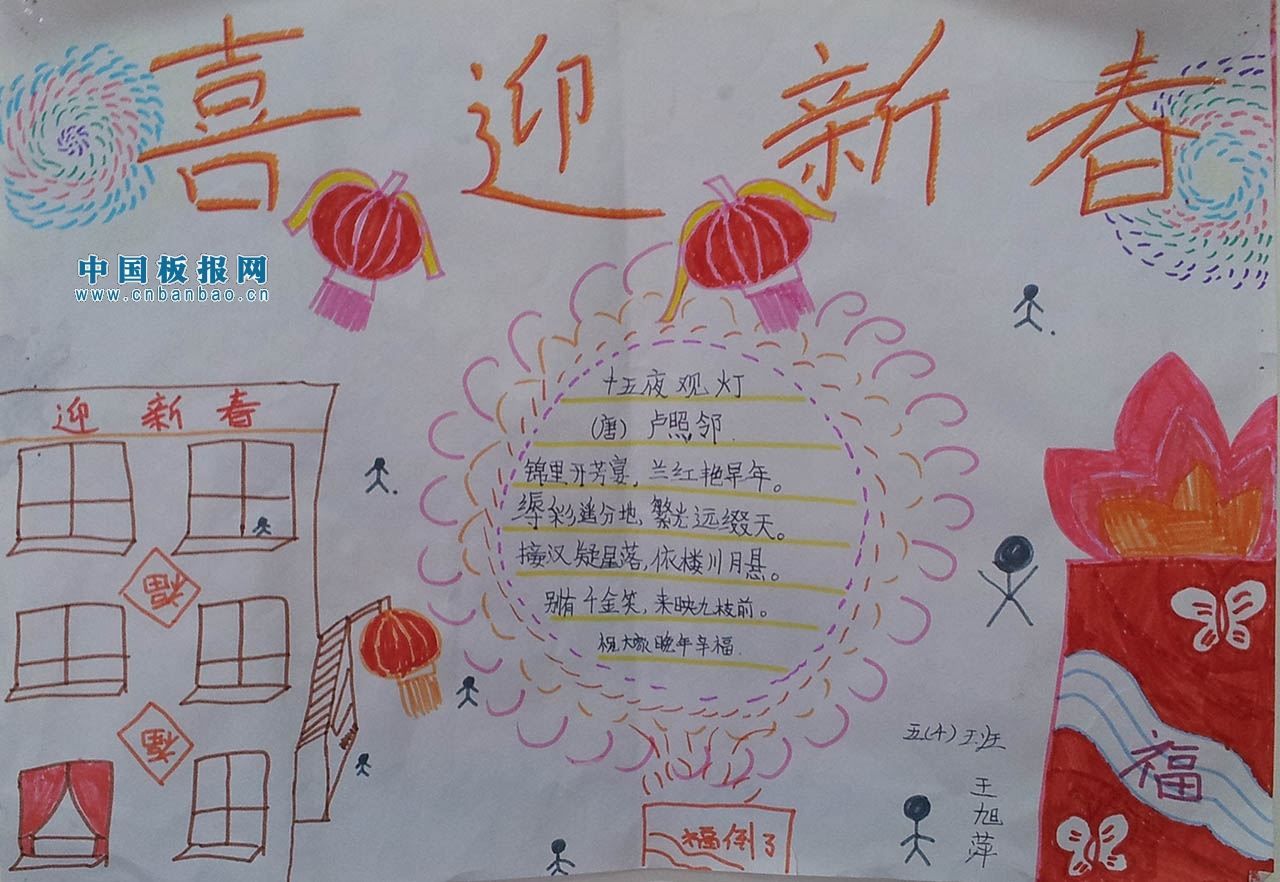 喜迎新春
中国板报网
www.cnbanbao.cn
迎新春
十五夜观灯
(唐) 卢照邻.
锦里开芳宴,兰红艳早年。
缛彩遥分地,繁光远缀天。
接汉疑星落,依楼川月悬。
别有千金笑,来映九枝前。
祝大家晚年幸福.
福
福
五(4)班
王旭萍
福
福倒了